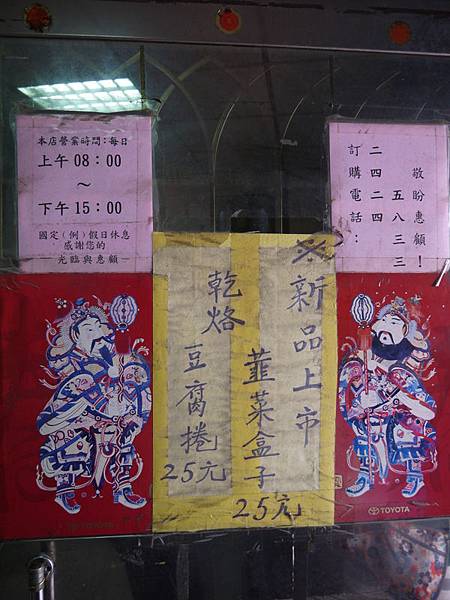 本店營業時間:每日
上午 08:00
～
下午 15:00
國定(例)假日休息
感謝您的
光臨與惠顧
訂購電話:
二四二四
五八三三
敬盼惠顧!
※新品上市
韮菜盒子
25元
乾烙
豆腐捲
25元
TOYOTA
TOYOTA